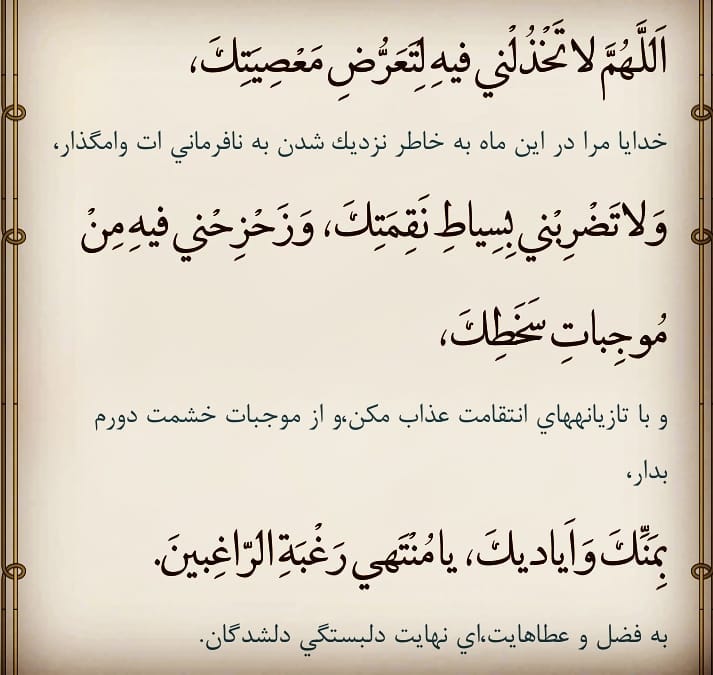 اَللَّهُمَّ لا تَخْذُلْني فيهِ لِتَعَرُّضِ مَعْصِيَتِكَ،
خدايا مرا در اين ماه به خاطر نزديك شدن به نافرماني ات وامگذار،
وَلا تَضْرِبْني بِسِياطِ نَقِمَتِكَ، وَزَحْزِحْني فيهِ مِنْ
مُوجِباتِ سَخَطِكَ،
و با تازيانههاي انتقامت عذاب مكن،و از موجبات خشمت دورم
بدار،
بِمَنِّكَ وَاَياديكَ، يا مُنْتَهي رَغْبَةِ الرّاغِبينَ.
به فضل و عطاهايت،اي نهايت دلبستگي دلشدگان.